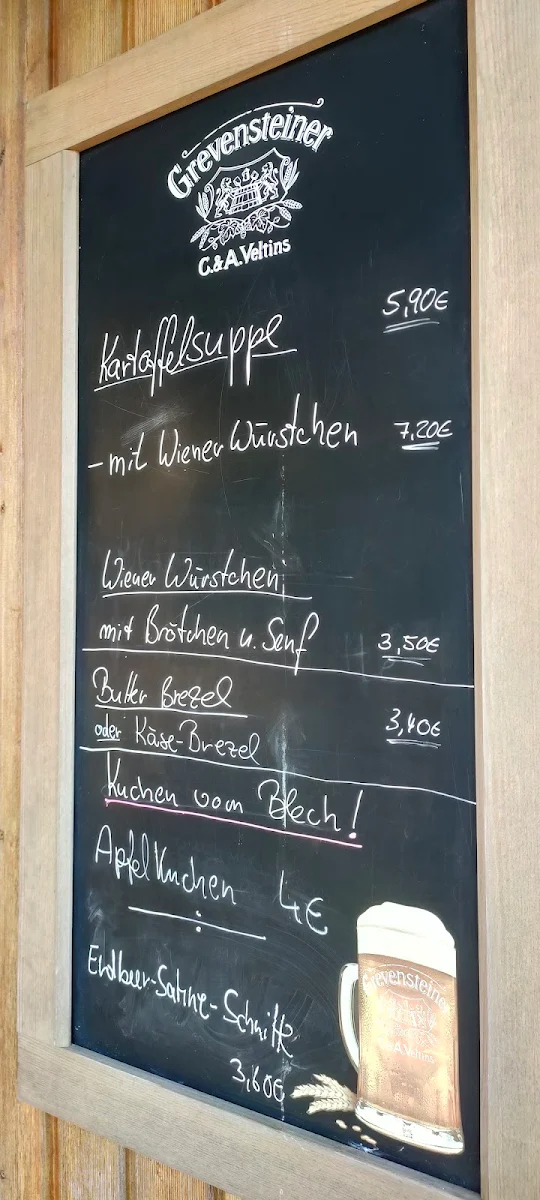 Grevensteiner
C.&A. Veltins
Kartoffelsuppe 5,90€
- mit Wiener Würstchen 7,20€
Wiener Würstchen
mit Brötchen u. Senf 3,50€
Butter Brezel
oder Käse-Brezel 3,40€
Kuchen vom Blech!
Apfelkuchen 4€
Erdbeer-Sahne-Schnitte
3,60€
Grevensteiner
C.&A. Veltins